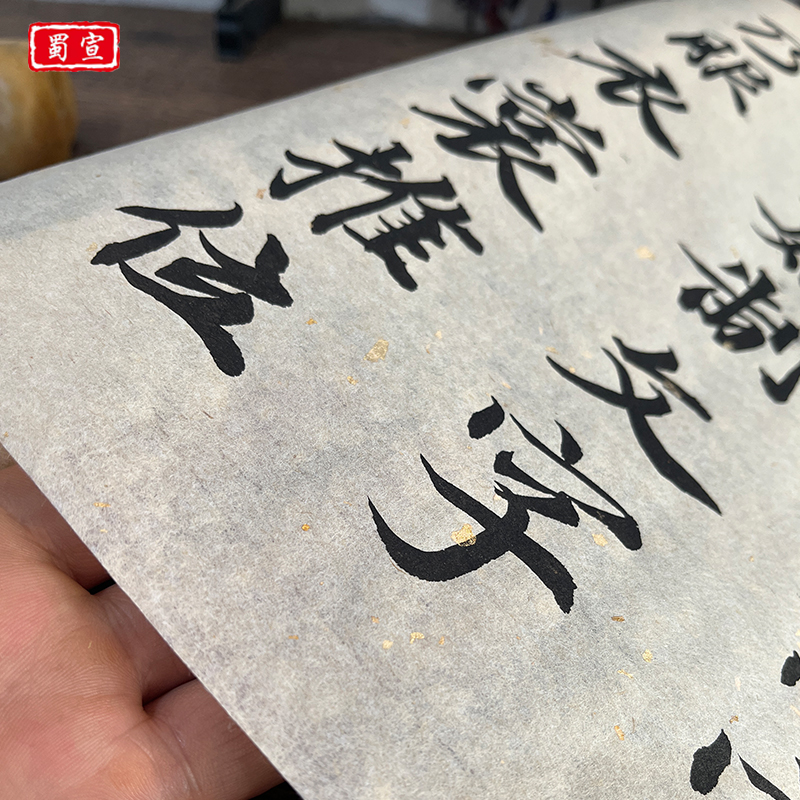 蜀宣
制文字
乃服衣裳推位